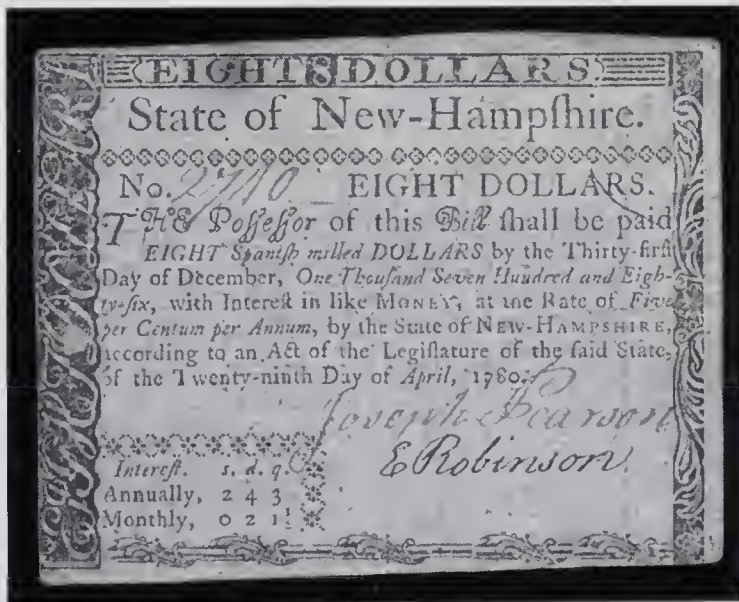 EIGHT 8 DOLLARS
State of New-Hampſhire.
No. 2740 EIGHT DOLLARS.
THE Poſſeſſor of this Bill ſhall be paid
EIGHT Spaniſh milled DOLLARS by the Thirty-firſt
Day of December, One Thouſand Seven Hundred and Eigh-
ty-ſix, with Intereſt in like MONEY, at the Rate of Five
per Centum per Annum, by the State of NEW-HAMPSHIRE,
according to an Act of the Legiſlature of the ſaid State,
of the Twenty-ninth Day of April, 1780.
Joseph Pearson
E Robinson.
Intereſt. s. d. q.
Annually, 2 4 3
Monthly, 0 2 1½